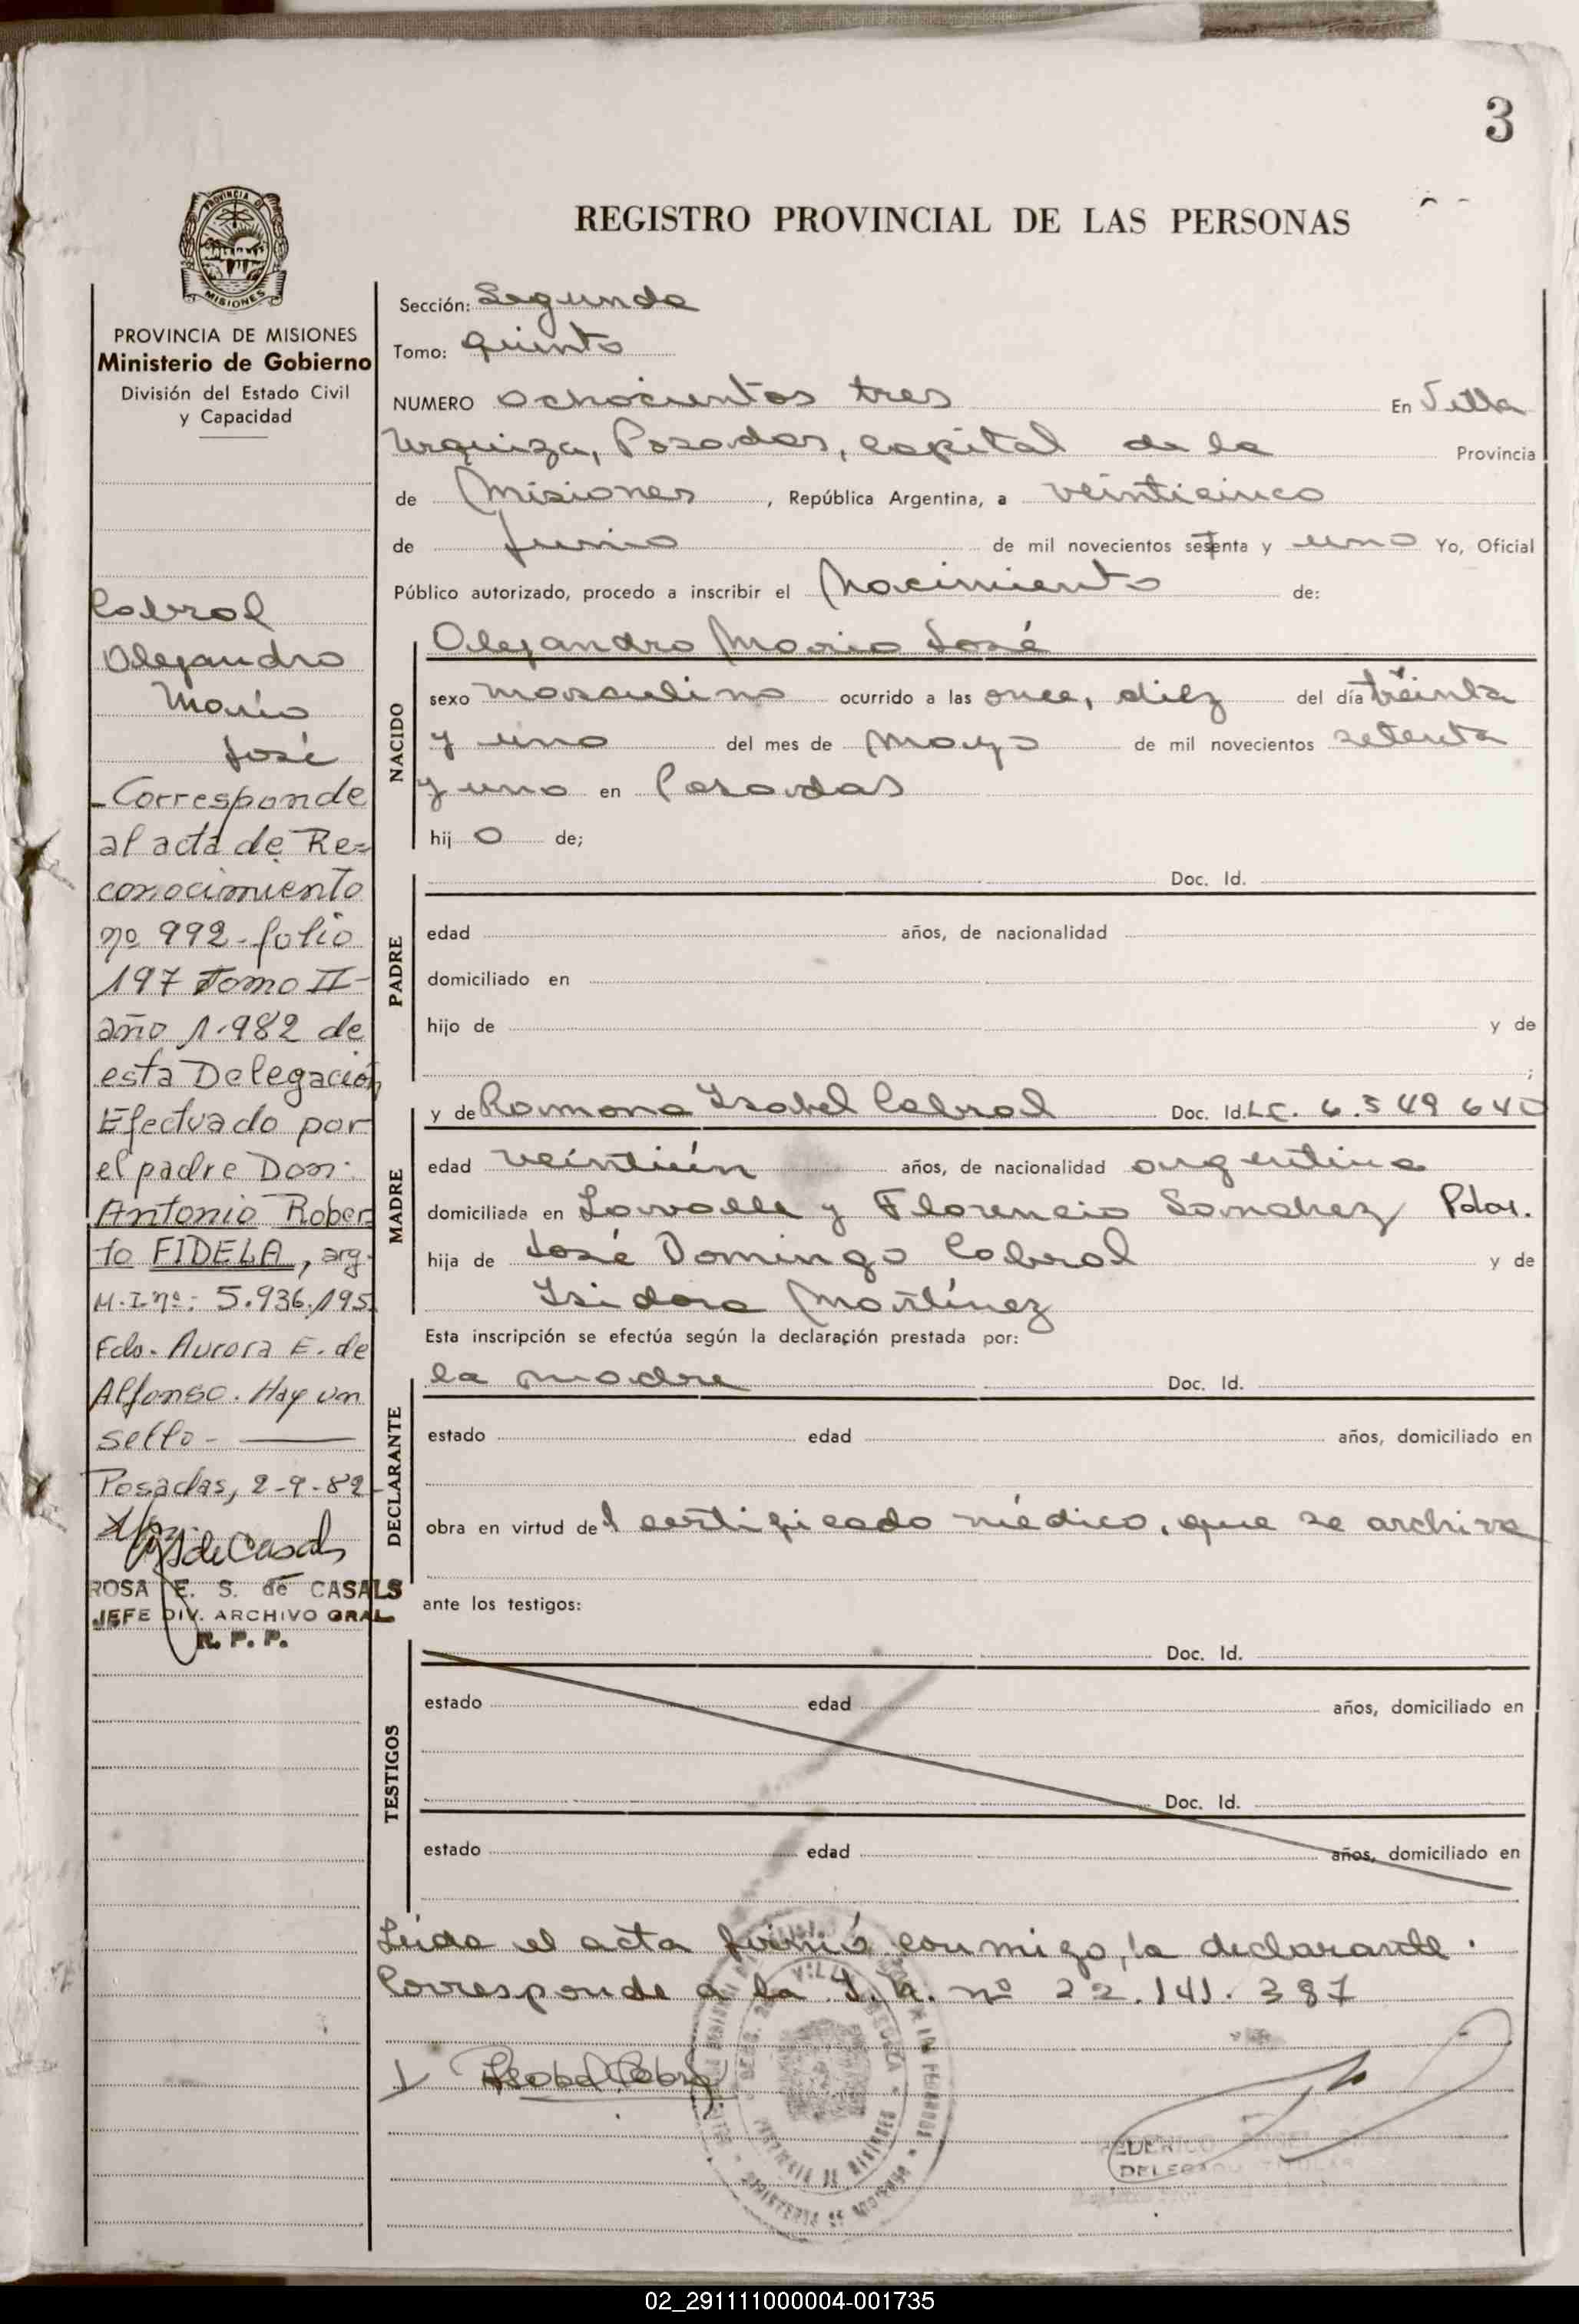 3
REGISTRO PROVINCIAL DE LAS PERSONAS
PROVINCIA DE MISIONES
Ministerio de Gobierno
División del Estado Civil
y Capacidad
Cabral
Alejandro
Mario
José
- Corresponde
al acta de Re=
conocimiento
nº 992 - folio
197 Tomo II -
año 1.982 de
esta Delegación
Efectuado por
el padre Don:
Antonio Rober
to FIDELA, arg.
M.I nº: 5.936.195
Fdo. Aurora E. de
Alfonso. Hay un
sello -
Posadas, 2-9-82
ROSA E. S. de CASALS
JEFE DIV. ARCHIVO GRAL
R. P. P.
Sección: Segunda
Tomo: Quinto
NUMERO Ochocientos tres En Villa
Urquiza, Posadas, capital de la Provincia
de Misiones, República Argentina, a veinticinco
de Junio de mil novecientos setenta y uno Yo, Oficial
Público autorizado, procedo a inscribir el Nacimiento de:
NACIDO
Alejandro Mario José
sexo masculino ocurrido a las once, diez del día treinta
y uno del mes de mayo de mil novecientos setenta
y uno en Posadas
hij o de;
PADRE
Doc. Id.
edad años, de nacionalidad
domiciliado en
hijo de y de
;
MADRE
y de Ramona Isabel Cabral Doc. Id. L.C. 6.549 640
edad veintiún años, de nacionalidad argentina
domiciliada en Lavalle y Florencio Sanchez Pdas.
hija de José Domingo Cabral y de
Isidora Martínez
Esta inscripción se efectúa según la declaración prestada por:
DECLARANTE
la madre Doc. Id.
estado edad años, domiciliado en
obra en virtud del certificado médico, que se archiva
ante los testigos:
TESTIGOS
Doc. Id.
estado edad años, domiciliado en
Doc. Id.
estado edad años, domiciliado en
Leida el acta firmó conmigo, la declarante.
Corresponde a la nº 22.141.387
Isabel Cabral
FEDERICO
DELEGADO TITULAR
02_291111000004-001735